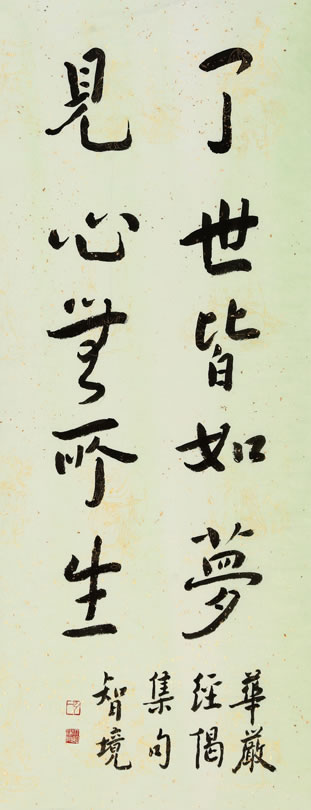 了世皆如夢
見心無所生
華嚴
經偈
集句
智境